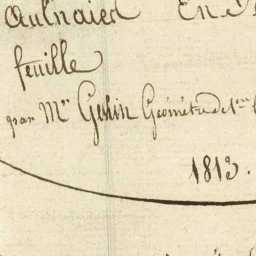 Aulnaies En
feuille
par Mr. Geslin Géomètre de 1ere
1813.